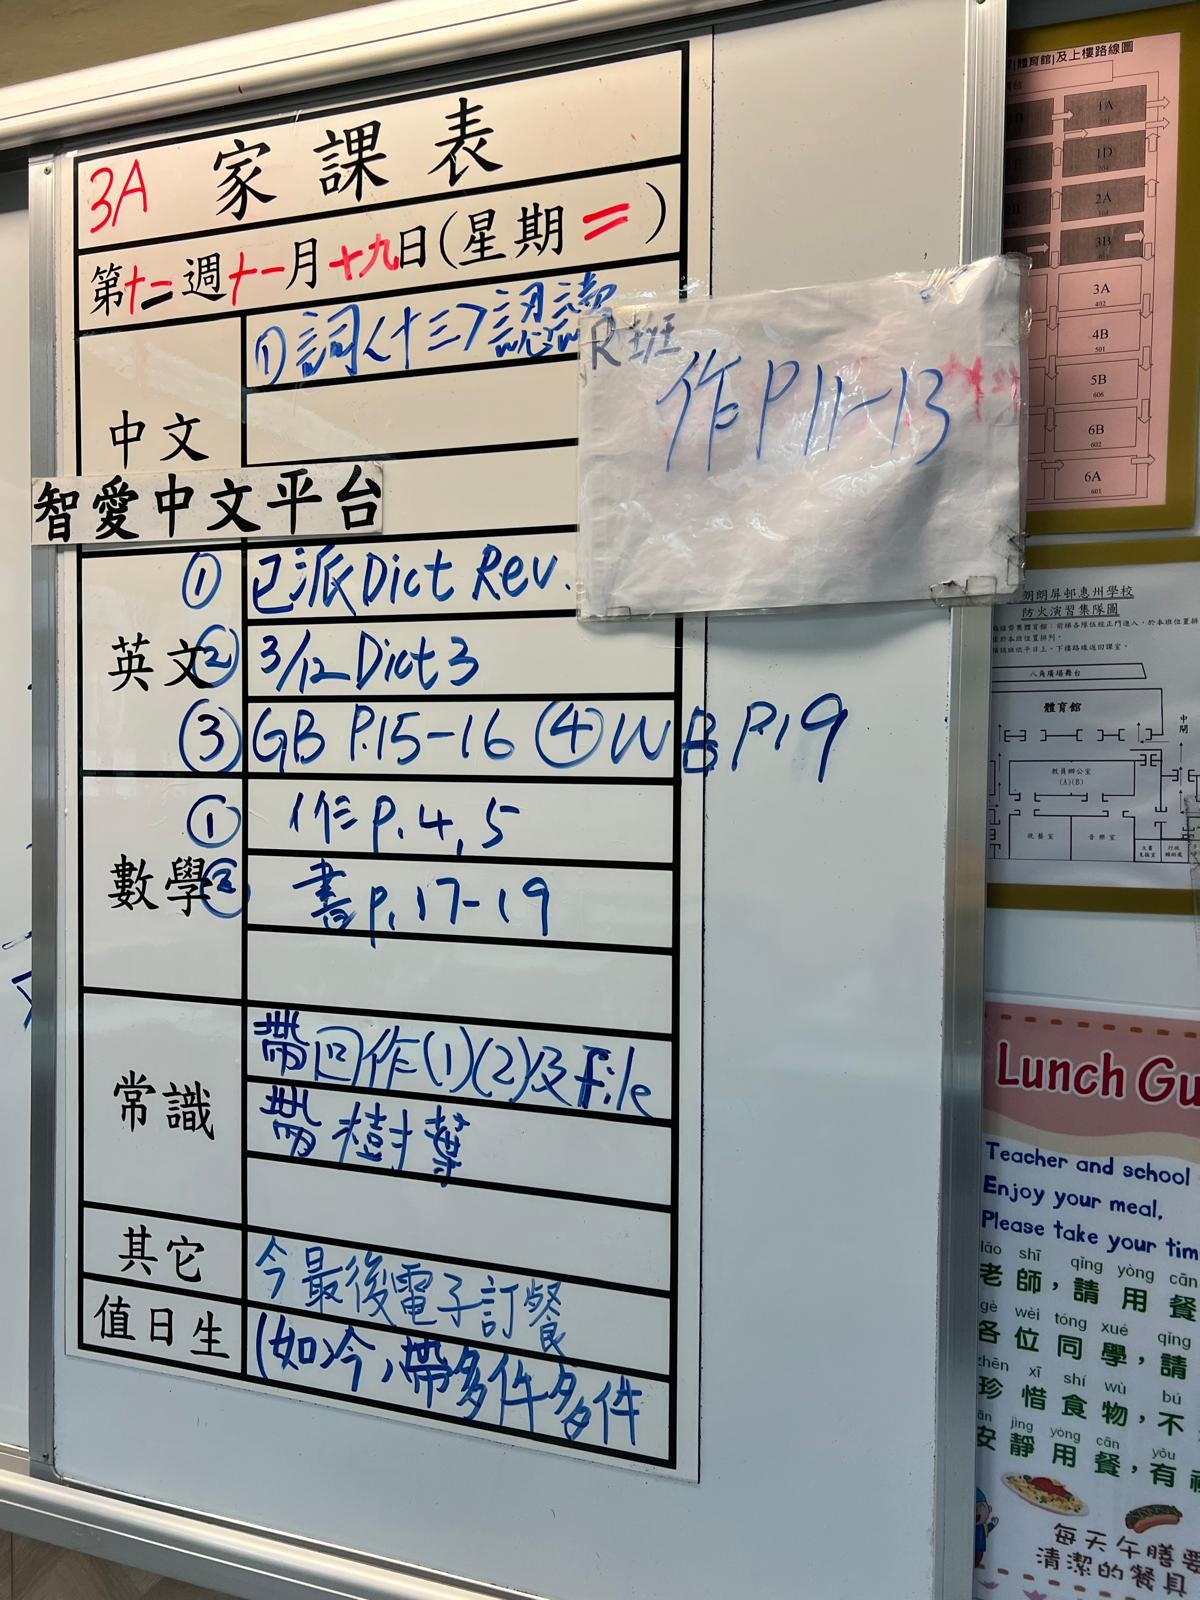 3A 家課表
第十二週十一月十九日(星期二)
中文
①詞(十三)認讀
R班
作P11-13
智愛中文平台
英文
① 已派Dict Rev.
② 3/12 Dict 3
③ GB P.15-16 ④WB P.19
數學
① 作P. 4, 5
② 書P. 17-19
常識
帶回作(1)(2)及file
帶樹葉
其它
今最後電子訂餐
值日生
(如冷,帶多件
[體育館]及上樓路線圖
1A
1D
2A
3B
3A
402
4B
501
5B
606
6B
602
6A
601
朗屏邨惠州學校
防火演習集隊圖
八角廣場舞台
體育館
中門
教員辦公室
(A)(B)
音樂室
Lunch Gu
Teacher and school
Enjoy your meal,
Please take your tim
lǎo shī qǐng yòng cān
老師,請用餐
gè wèi tóng xué qǐng
各位同學,請
zhēn xī shí wù bú
珍惜食物,不
ān jìng yòng cān yǒu
安靜用餐,有
每天午膳要
清潔的餐具